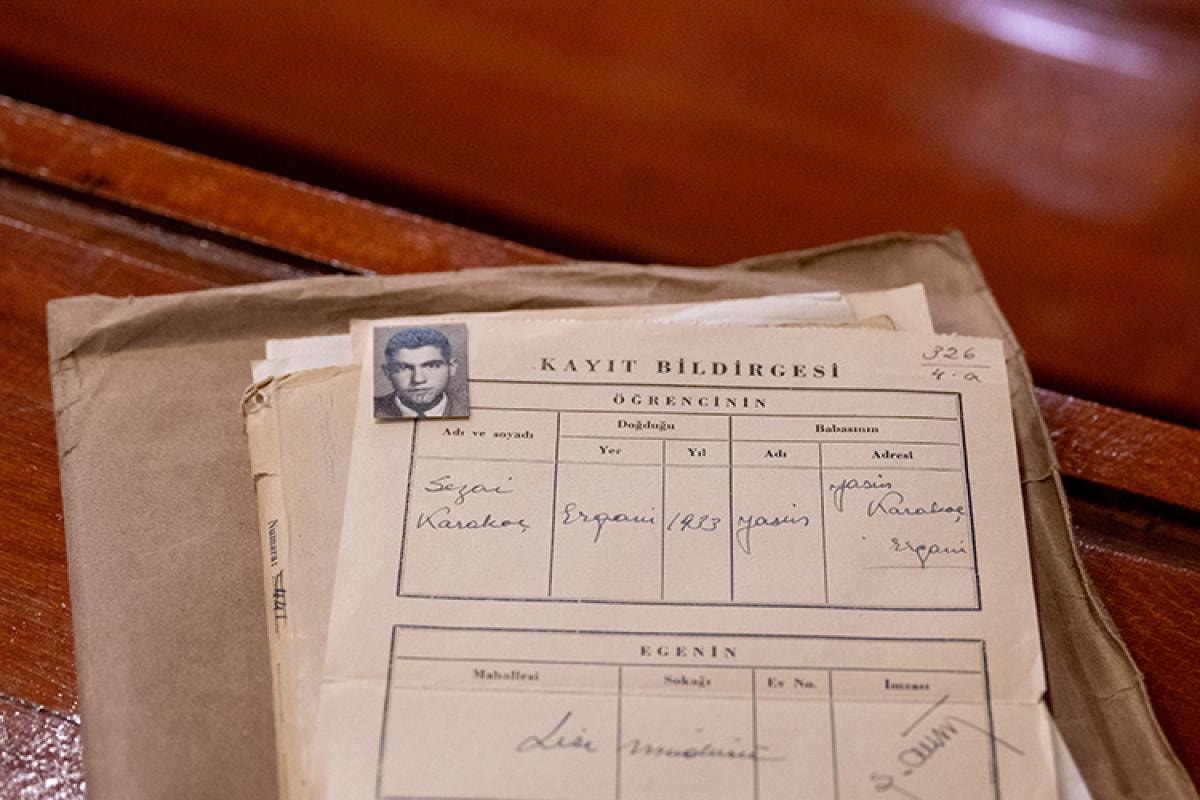 326
4-a
KAYIT BİLDİRGESİ
ÖĞRENCİNİN
Adı ve soyadı
Doğduğu
Babasının
Yer
Yıl
Adı
Adresi
Sezai
Karakoç
Ergani
1933
Yasin
Yasin
Karakoç
Ergani
Numara:
EGENİN
Mahallesi
Sokağı
Ev No.
İmzası
Lise Müdürü